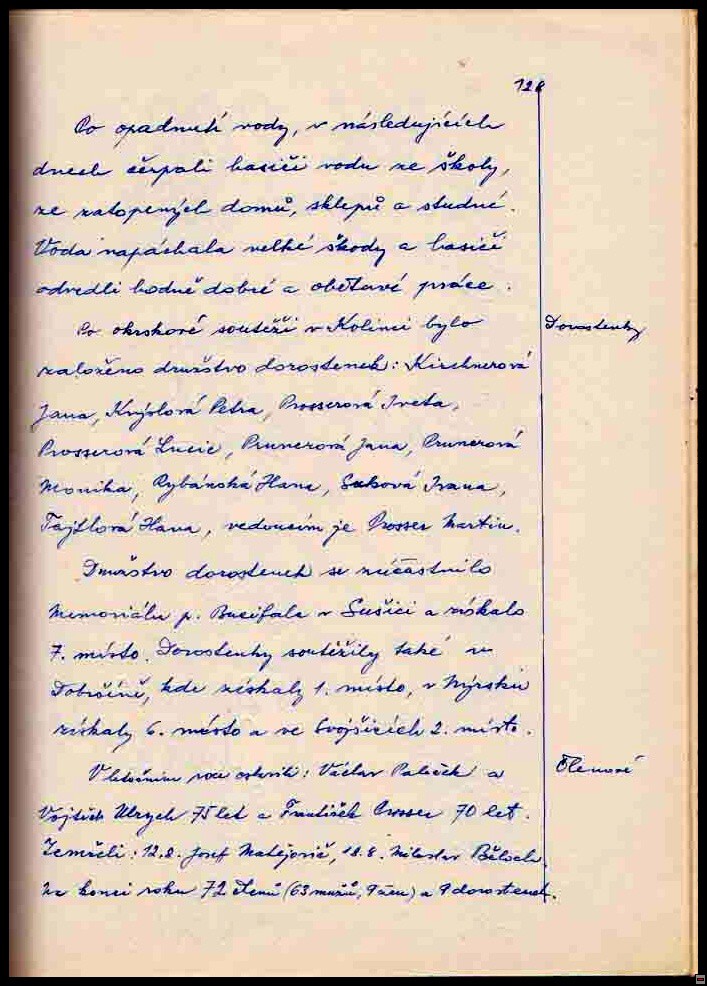 128
Po opadnutí vody, v následujících
dnech čerpali hasiči vodu ze školy,
ze zatopených domů, sklepů a studně.
Voda napáchala velké škody a hasiči
odvedli hodně dobré a obětavé práce.
Po okrskové soutěži v Kolinci bylo
Dorostenky
založeno družstvo dorostenek: Kirchnerová
Jana, Knýslová Petra, Prosserová Iveta,
Prosserová Lucie, Prunerová Jana, Prunerová
Monika, Rybánská Hana, Suková Ivana,
Tajtlová Hana, vedoucím je Prosser Martin.
Družstvo dorostenek se zúčastnilo
Memoriálu p. Bucifala v Sušici a získalo
7. místo. Dorostenky soutěžily také v
Dobršíně, kde získaly 1. místo, v Nýrsku
získaly 6. místo a ve Svojšicích 2. místo.
V letošním roce oslavili: Václav Paleček a
Členové
Vojtěch Ulrych 75 let a František Prosser 70 let.
Zemřeli: 12.8. Josef Matějovič, 18.8. Miloslav
Na konci roku 72 členů (63 mužů, 9 žen) a 9 dorostenek.